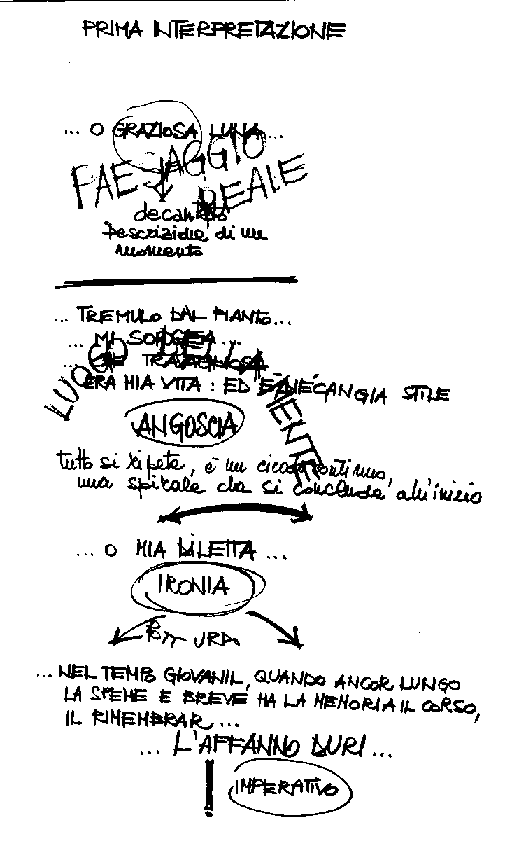 PRIMA INTERPRETAZIONE
... O GRAZIOSA LUNA...
PAESAGGIO
REALE
descrizione di un
momento
... TREMULO DAL PIANTO...
... MI SORGEA...
... CHE TRAVAGLIOSA
ERA MIA VITA : ED È, NÈ CANGIA STILE
LUOGO DELLA MENTE
ANGOSCIA
tutto si ripete, è un circolo continuo,
una spirale che si conclude all'inizio
... O MIA DILETTA ...
IRONIA
... NEL TEMPO GIOVANIL, QUANDO ANCOR LUNGO
LA SPEME E BREVE HA LA MEMORIA IL CORSO,
IL RIMEMBRAR ...
... L'AFFANNO DURI ...
IMPERATIVO